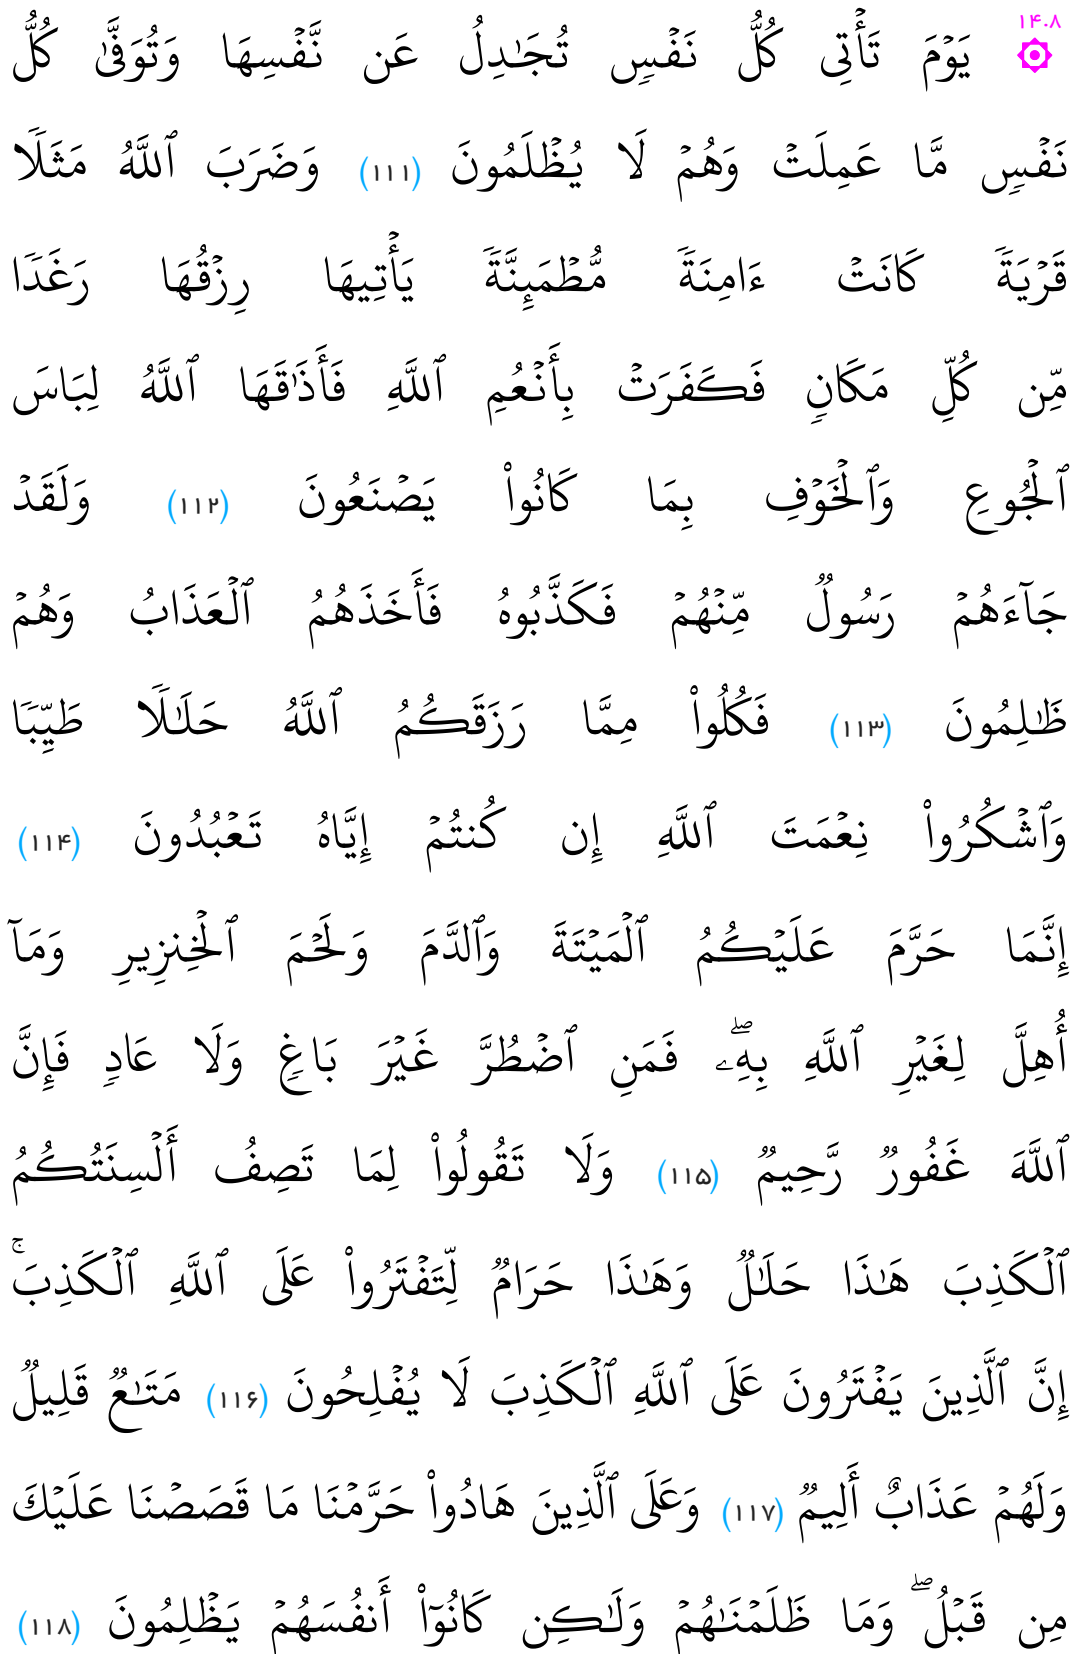 ۱۴.۸
۞ يَوۡمَ تَأۡتِي كُلُّ نَفۡسٖ تُجَٰدِلُ عَن نَّفۡسِهَا وَتُوَفَّىٰ كُلُّ
نَفۡسٖ مَّا عَمِلَتۡ وَهُمۡ لَا يُظۡلَمُونَ (۱۱۱) وَضَرَبَ ٱللَّهُ مَثَلٗا
قَرۡيَةٗ كَانَتۡ ءَامِنَةٗ مُّطۡمَئِنَّةٗ يَأۡتِيهَا رِزۡقُهَا رَغَدٗا
مِّن كُلِّ مَكَانٖ فَكَفَرَتۡ بِأَنۡعُمِ ٱللَّهِ فَأَذَٰقَهَا ٱللَّهُ لِبَاسَ
ٱلۡجُوعِ وَٱلۡخَوۡفِ بِمَا كَانُواْ يَصۡنَعُونَ (۱۱۲) وَلَقَدۡ
جَآءَهُمۡ رَسُولٞ مِّنۡهُمۡ فَكَذَّبُوهُ فَأَخَذَهُمُ ٱلۡعَذَابُ وَهُمۡ
ظَٰلِمُونَ (۱۱۳) فَكُلُواْ مِمَّا رَزَقَكُمُ ٱللَّهُ حَلَٰلٗا طَيِّبٗا
وَٱشۡكُرُواْ نِعۡمَتَ ٱللَّهِ إِن كُنتُمۡ إِيَّاهُ تَعۡبُدُونَ (۱۱۴)
إِنَّمَا حَرَّمَ عَلَيۡكُمُ ٱلۡمَيۡتَةَ وَٱلدَّمَ وَلَحۡمَ ٱلۡخِنزِيرِ وَمَآ
أُهِلَّ لِغَيۡرِ ٱللَّهِ بِهِۦۖ فَمَنِ ٱضۡطُرَّ غَيۡرَ بَاغٖ وَلَا عَادٖ فَإِنَّ
ٱللَّهَ غَفُورٞ رَّحِيمٞ (۱۱۵) وَلَا تَقُولُواْ لِمَا تَصِفُ أَلۡسِنَتُكُمُ
ٱلۡكَذِبَ هَٰذَا حَلَٰلٞ وَهَٰذَا حَرَامٞ لِّتَفۡتَرُواْ عَلَى ٱللَّهِ ٱلۡكَذِبَۚ
إِنَّ ٱلَّذِينَ يَفۡتَرُونَ عَلَى ٱللَّهِ ٱلۡكَذِبَ لَا يُفۡلِحُونَ (۱۱۶) مَتَٰعٞ قَلِيلٞ
وَلَهُمۡ عَذَابٌ أَلِيمٞ (۱۱۷) وَعَلَى ٱلَّذِينَ هَادُواْ حَرَّمۡنَا مَا قَصَصۡنَا عَلَيۡكَ
مِن قَبۡلُۖ وَمَا ظَلَمۡنَٰهُمۡ وَلَٰكِن كَانُوٓاْ أَنفُسَهُمۡ يَظۡلِمُونَ (۱۱۸)